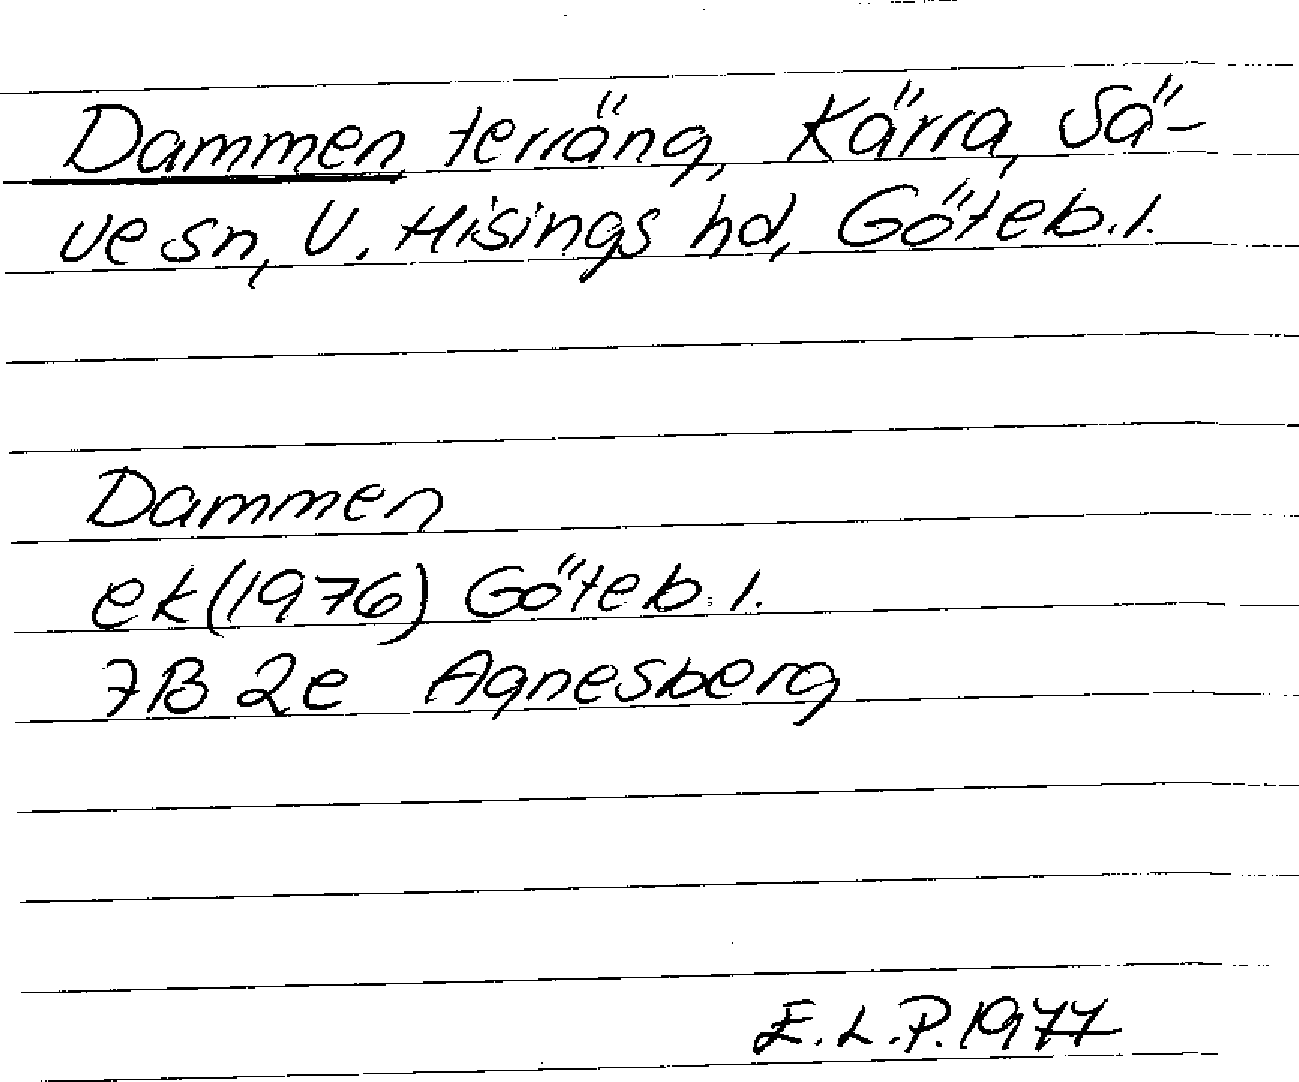 Dammen terräng, Kärra, Sä-
ve sn, V. Hisings hd, Göteb.l.
Dammen
ek(1976) Göteb.l.
7B 2e Agnesberg
E.L.P.1977